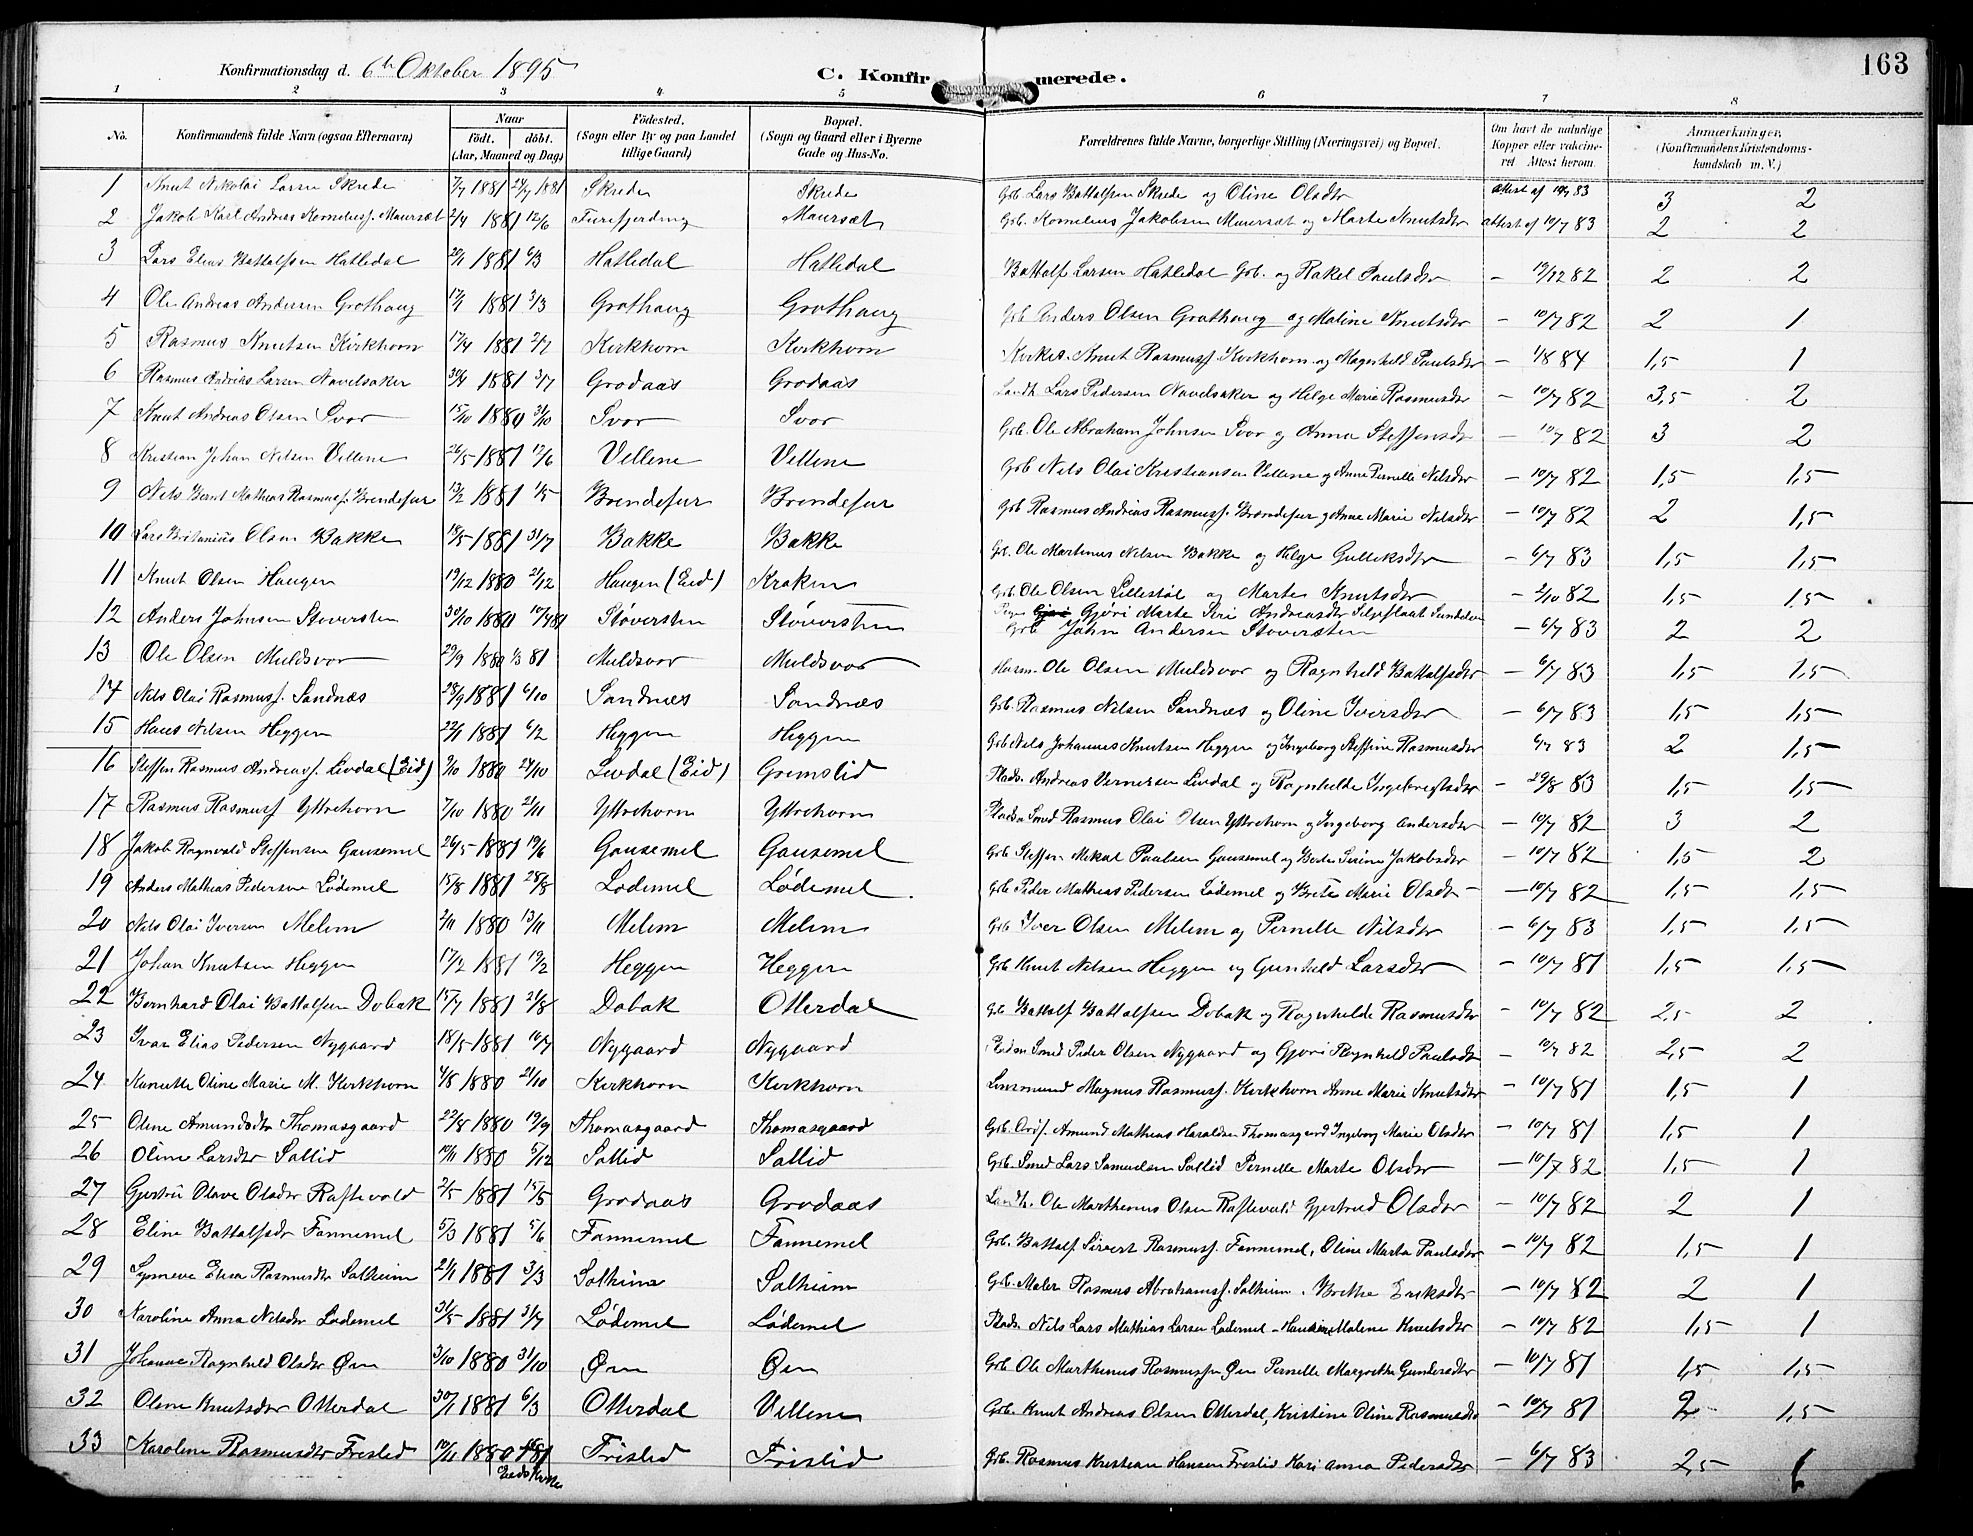 163
Konfirmationsdag d. 6te Oktober 1895
C. Konfirmerede.
1 2 3 4 5 6 7 8
No. Konfirmandens fulde Navn (ogsaa Efternavn) Naar född. döbt. (Aar, Maaned og Dag) Födested. (Sogn eller By og paa Landet tillige Gaard) Bopæl. (Sogn og Gaard eller i Byerne Gade og Hus-No. Forældrenes fulde Navne, borgerlige Stilling (Næringsvei) og Bopæl. Om havt de naturlige Kopper eller vaccineret Attest herom. Anmærkninger, (Konfirmandens Kristendomskundskab m. V.)
1 Knut Nikolai Larsen Skrede 7/7 1881 24/7 1881 Skrede Skrede Grb. Lars Battalfsen Skrede og Oline Olsdtr attest af 10/7 83 3 2
2 Jakob Karl Andreas Korneliuss. Maursæt 2/4 1881 12/6 Furefjerding Maursæt Grb. Kornelius Jakobsen Maursæt og Marte Knutsdtr attest af 10/7 83 2 2
3 Lars Elias Battalfsen Hatledal 20/1 1881 6/3 Hatledal Hatledal Battalf Larsen Hatledal Grb. og Rakel Paulsdtr - 19/12 82 2 2
4 Ole Andreas Andersen Grothaug 17/1 1881 3/3 Grothaug Grothaug Grb. Anders Olsen Grothaug og Maline Knutsdtr - 10/7 82 2 1
5 Rasmus Knutsen Kirkhorn 17/4 1881 2/7 Kirkhorn Kirkhorn Kirkes. Knut Rasmuss. Kirkhorn og Magnhild Paulsdtr - 1/8 84 1,5 1
6 Rasmus Andreas Larsen Navelsaker 30/4 1881 3/7 Grodaas Grodaas Landh. Lars Pedersen Navelsaker og Helge Marie Rasmusdtr - 10/7 82 3,5 2
7 Knut Andreas Olsen Svor 15/10 1880 31/10 Svor Svor Grb. Ole Abraham Johnsen Svor og Anna Steffensdtr - 10/7 82 3 2
8 Kristian Johan Nilsen Vellene 26/5 1881 12/6 Vellene Vellene Grb. Nils Olai Kristiansen Vellene og Anne Pernille Nilsdtr - 10/7 82 1,5 1,5
9 Nils Bernt Mathias Rasmuss. Brendefur 13/2 1881 1/5 Brendefur Brendefur Grb. Rasmus Andreas Rasmuss. Brendefur og Anne Marie Nilsdtr - 10/7 82 2 1,5
10 Lars Britanius Olsen Bakke 18/5 1881 31/7 Bakke Bakke Grb. Ole Martinus Nilsen Bakke og Helge Gulleksdtr - 6/7 83 1,5 1,5
11 Knut Olsen Haugen 19/12 1880 21/12 Haugen (Eid) Kraken Grb. Ole Olsen Lillestøl og Marte Knutsdtr - 2/10 82 1,5 1,5
12 Anders Johnsen Støversten 30/10 1880 10/4 81 Støversten Støversten Gjøri Marte Siri Andreasdtr
Grb. John Andersen Støversten - 6/7 83 2 2
13 Ole Olsen Muldsvor 29/9 1880 1/3 81 Muldsvor Muldsvor Husm. Ole Olsen Muldsvor og Ragnhild Battalfsdtr - 6/7 83 1,5 1,5
14 Nils Olai Rasmuss. Sandnæs 28/9 1881 6/10 Sandnæs Sandnæs Grb. Rasmus Nilsen Sandnæs og Oline Iversdtr - 6/7 83 1,5 1,5
15 Hans Nilsen Heggen 22/1 1881 6/2 Heggen Heggen Grb. Nils Johannes Knutsen Heggen og Ingeborg Steffine Rasmusdtr 6/7 83 2 1,5
16 Steffen Rasmus Andreass. Levdal (Eid) 9/10 1880 24/10 Levdal (Eid) Gremslid Plads. Andreas Vernersen Levdal og Ragnhilde Ingebrigtsdtr - 29/8 83 1,5 1,5
17 Rasmus Rasmuss Yttrehorn 7/10 1880 21/11 Yttrehorn Yttrehorn Pladsm. Smed Rasmus Olai Olsen Yttrehorn og Ingeborg Andersdtr - 10/7 82 3 2
18 Jakob Ragnvald Steffensen Gausemel 26/5 1881 19/6 Gausemel Gausemel Grb. Steffen Mikal Paulsen Gausemel og Berte Serine Jakobsdtr - 10/7 82 1,5 2
19 Anders Mathias Pedersen Lødemel 15/8 1881 28/8 Lødemel Lødemel. Grb. Peder Mathias Pedersen Lødemel og Brete Marie Olsdtr - 10/7 82 1,5 1,5
20 Nils Olai Iversen Melem 2/11 1880 13/11 Melem Melem Grb. Iver Olsen Melem og Pernelle Nilsdtr - 6/7 83 1,5 1,5
21 Johan Knutsen Heggen 17/2 1881 19/2 Heggen Heggen Grb. Knut Nilsen Heggen og Gunhild Larsdtr - 10/7 81 1,5 1,5
22 Bernhard Olai Battalfsen Dobak 15/7 1881 21/8 Dobak Otterdal Grb. Battalf Battalfsen Dobak og Ragnhilde Rasmusdtr - 10/7 82 2,5 2
23 Ivar Elias Pedersen Nygaard 18/5 1881 10/7 Nygaard Nygaard Smed Peder Olsen Nygaard og Gjøri Ragnhild Paulsdtr - 10/7 82 2,5 2
24 Kanutte Oline Marie M. Kirkhorn 4/8 1880 21/10 Kirkhorn Kirkhorn Lensmand Magnus Rasmuss. Kirkhorn Anne Marie Knutsdtr - 10/7 81 1,5 1
25 Oline Amundsdtr Thomasgaard 22/8 1880 19/9 Thomasgaard Thomasgaard Grb. Ordf. Amund Mathias Haraldsen Thomasgaard Ingeborg Marie Olsdtr - 10/7 81 1,5 1
26 Oline Larsdtr Sætlid 10/11 1880 5/12 Sætlid Sætlid Grb. Smed Lars Samuelsen Sætlid Pernelle Marte Olsdtr - 10/7 82 1,5 1
27 Gjertrii Olave Olsdtr Raftevold 2/5 1881 15/5 Grodaas Grodaas Landh. Ole Marthenus Olsen Raftevold Gjertrud Olsdtr - 10/7 82 2 1
28 Eline Battalfsdtr Fannemel 5/3 1881 5/6 Fannemel Fannemel Grb. Battalf Sivert Rasmuss. Fannemel, Oline Marta Paulsdtr - 10/7 82 1,5 1
29 Synneve Elisa Rasmusdtr Solheim 21/1 1881 3/3 Solheim Solheim Grb. Maler Rasmus Abrahamss. Solheim. Brethe Eriksdtr - 10/7 82 2 1
30 Karoline Anna Nilsdtr Lødemel 31/5 1881 3/7 Lødemel Lødemel Plads. Nils Lars Mathias Larsen Lødemel - Hansine Malene Knutsdtr - 10/7 82 1,5 1
31 Johanne Ragnhild Olsdtr Øen 3/10 1880 31/10 Øen Øen Grb. Ole Marthinus Rasmussen Øen Pernelle Margrethe Gundersdtr - 10/7 81 1,5 1,5
32 Olene Knutsdtr Otterdal 30/1 1881 6/3 Otterdal Vellene Grb. Knut Andreas Olsen Otterdal, Kristine Oline Rasmusdtr - 10/7 81 2 1,5
33 Karoline Rasmusdtr Frislid 10/11 1880 81 Frislid Frislid Grb. Rasmus Kristian Hansen Frislid Kari Anna Pedersdtr - 6/7 83 2,5 1
Eids Kirke